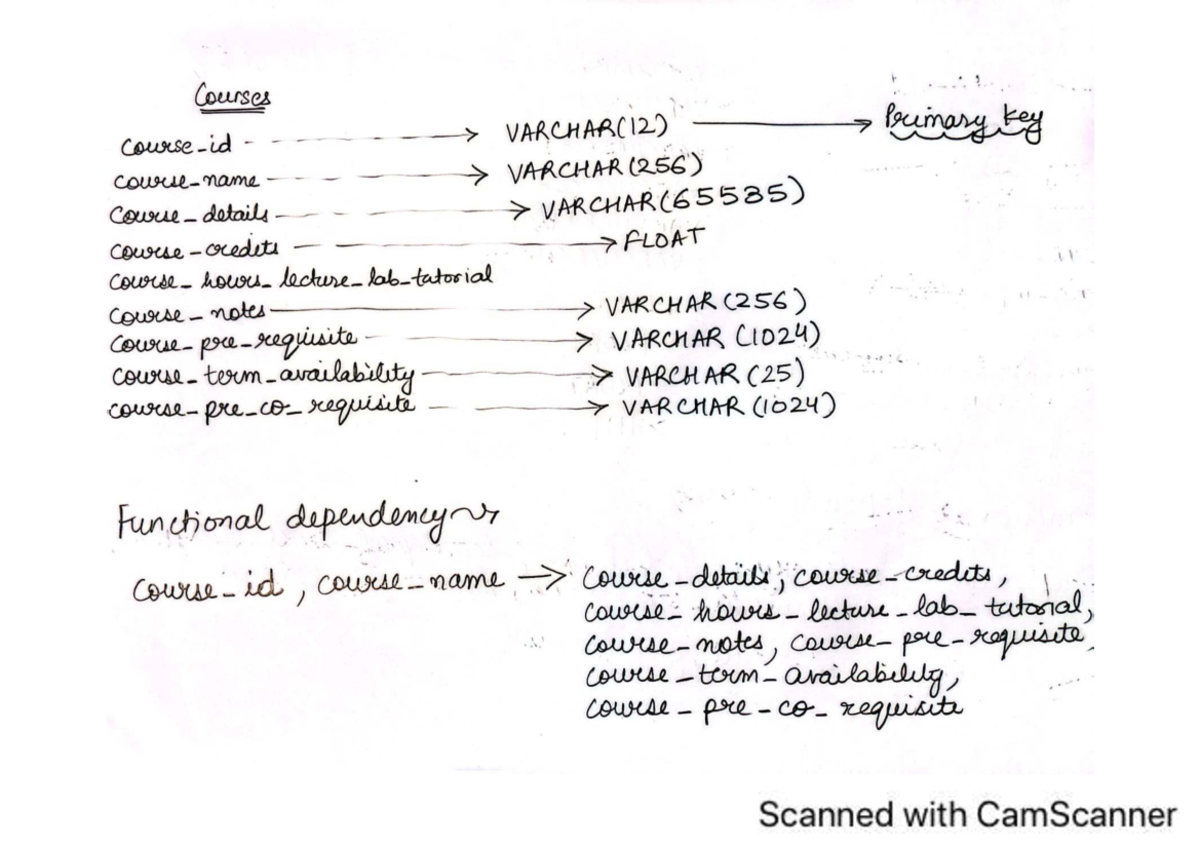 Courses
course_id → VARCHAR(12) → Primary key
course_name → VARCHAR(256)
course_details → VARCHAR(65535)
course_credits → FLOAT
course_hours_lecture_lab_tutorial
course_notes → VARCHAR(256)
course_pre_requisite → VARCHAR(1024)
course_term_availability → VARCHAR(25)
course_pre_co_requisite → VARCHAR(1024)
Functional dependency
course_id, course_name → course_details, course_credits,
course_hours_lecture_lab_tutorial,
course_notes, course_pre_requisite,
course_term_availability,
course_pre_co_requisite
Scanned with CamScanner